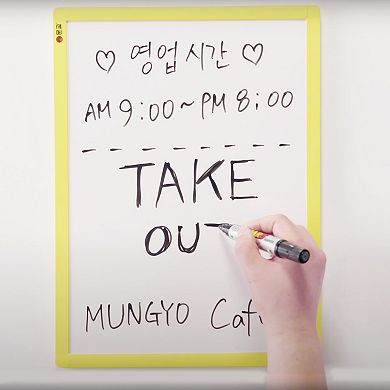 ♡ 영업시간 ♡
AM 9:00 ~ PM 8:00
TAKE
OUT
MUNGYO Caf